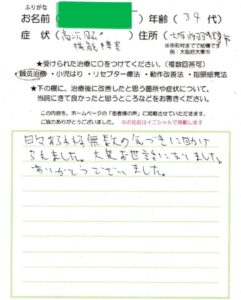 ふりがな
お名前 年齢（39代）
症状（高次脳機能障害 住所（大阪府羽曳野市
※市町村までで結構です
（例）大阪府大東市
★受けられた治療に○をつけてください。（複数回答可）
鍼灸治療・小児はり・リセプター療法・動作改善法・指頭感覚法
★下の欄に、治療後に改善したと思う箇所や症状について、
当院にきて良かったと思うところなどをお書きください。
この内容を、ホームページの「患者様の声」に掲載させていただきます。
ご協力ありがとうございました。 ※お名前はイニシャルで掲載します
日々なされる無数の気づきに助け
られました。大変お世話になりました。
ありがとうございました。